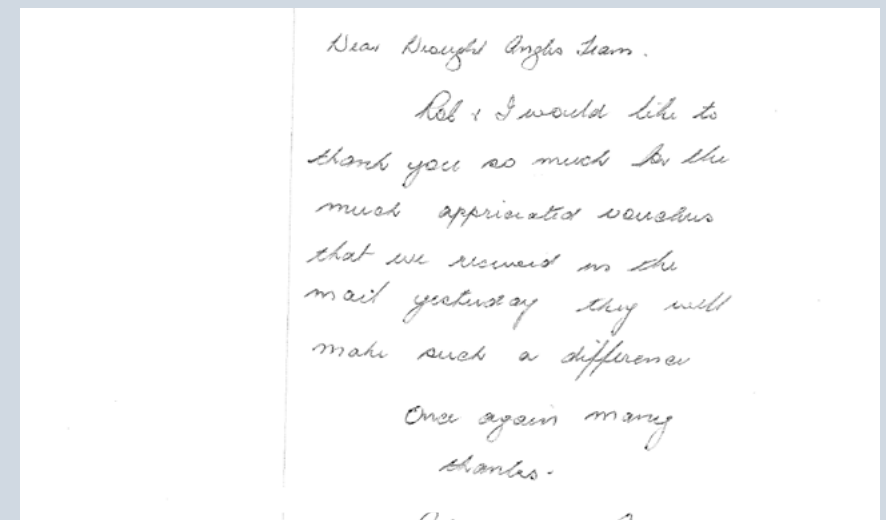 Dear Drought Angels Team.
Rob & I would like to
thank you so much for the
much appriciated vouchers
that we received in the
mail yesterday they will
make such a difference
Once again many
thanks.